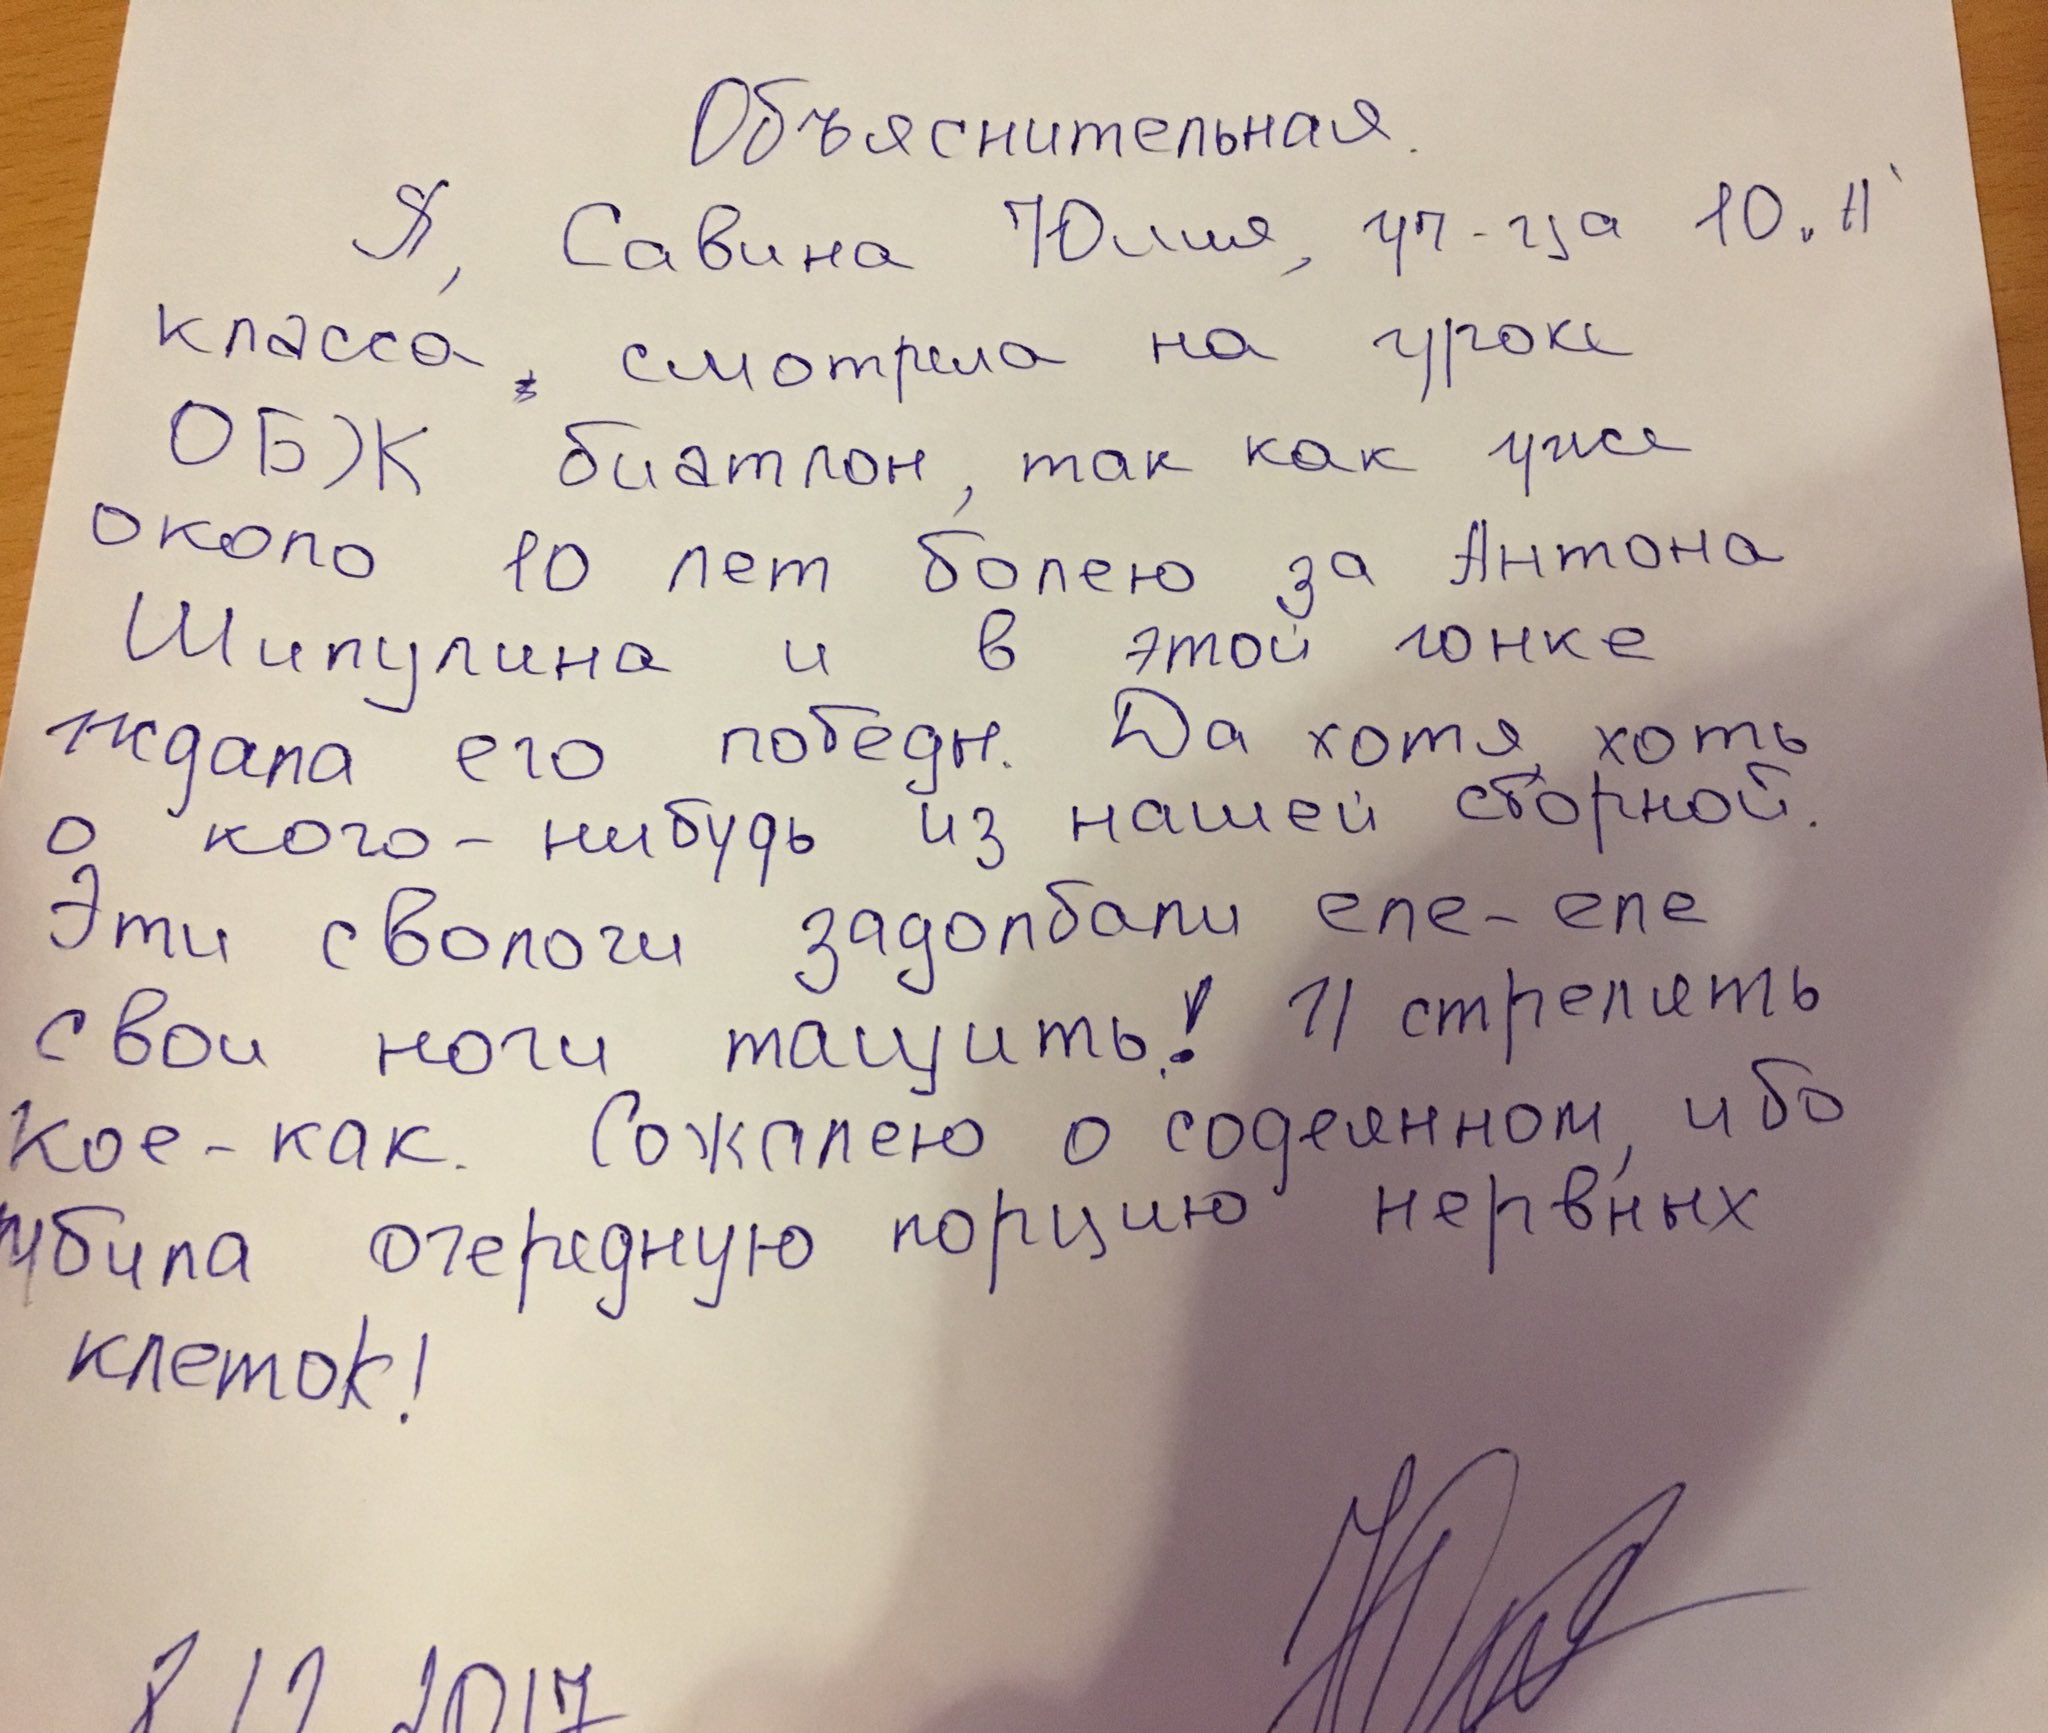 Объяснительная.
Я, Савина Юлия, уч-ца 10 "А"
класса, смотрела на уроке
ОБЖ биатлон, так как уже
около 10 лет болею за Антона
Шипулина и в этой гонке
ждала его победы. Да хотя, хоть
о кого-нибудь из нашей сборной.
Эти сволочи задолбали еле-еле
свои ноги тащить! И стрелять
кое-как. Сожалею о содеянном, ибо
убила очередную порцию нервных
клеток!
8 12 2017